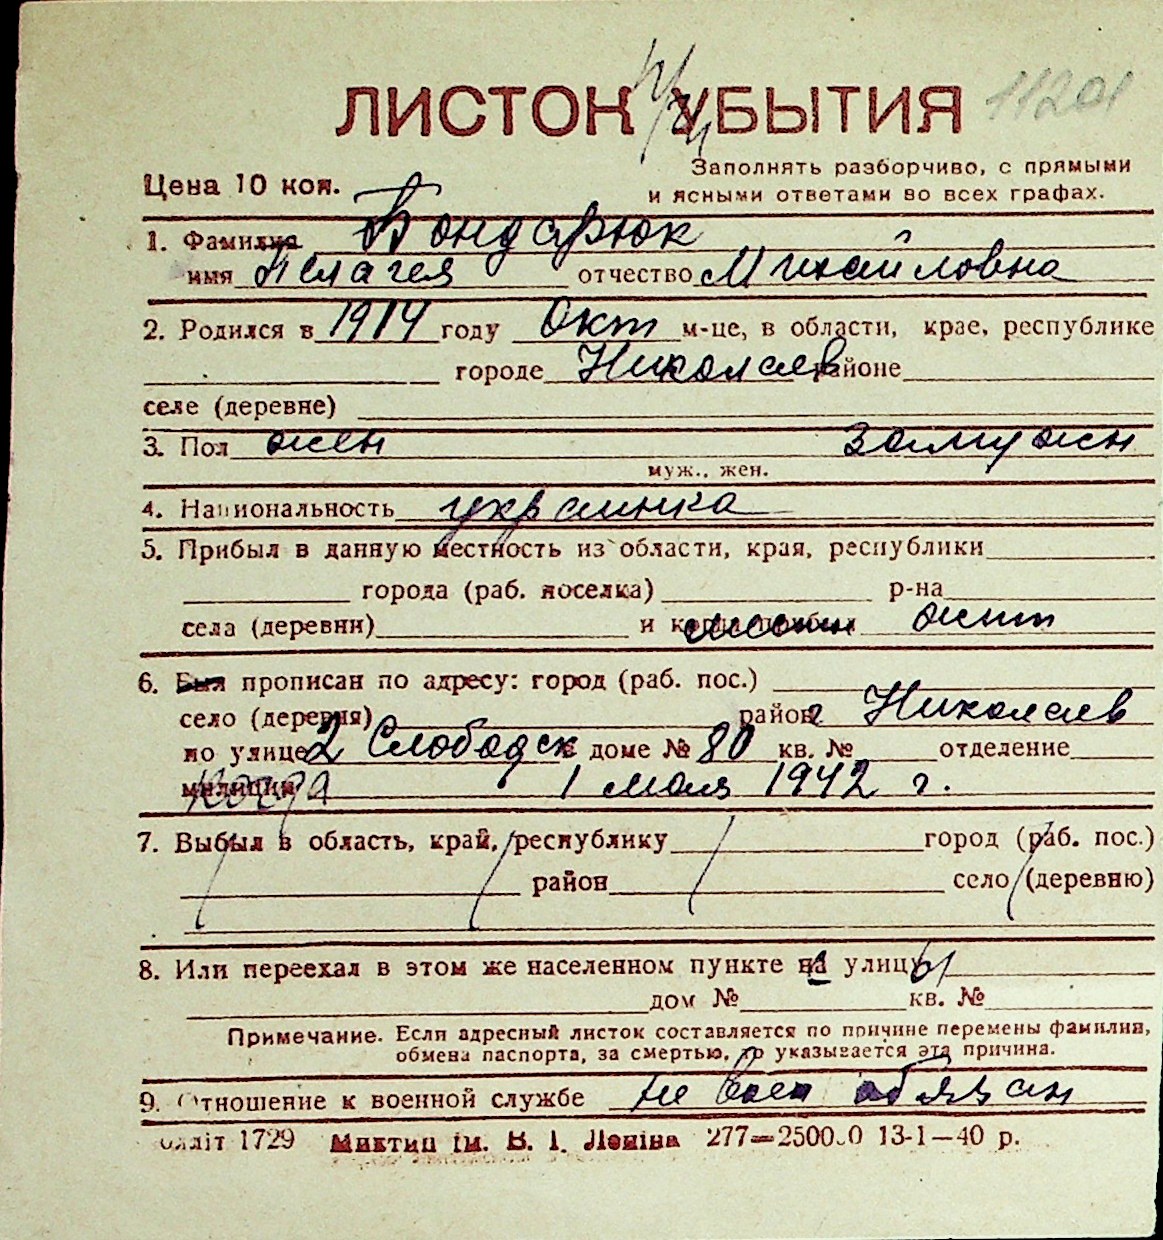 ЛИСТОК УБЫТИЯ 11201
Заполнять разборчиво, с прямыми
Цена 10 коп. и ясными ответами во всех графах.
1. Фамилия Бондарюк
имя Пелагея отчество Михайловна
2. Родился в 1914 году Окт м-це, в области, крае, республике
городе Николаев районе
селе (деревне)
3. Пол жен замужн
муж., жен.
4. Национальность украинка
5. Прибыл в данную местность из области, края, республики
города (раб. поселка) р-на
села (деревни) и когда прибыл жит
6. Был прописан по адресу: город (раб. пос.)
село (деревня) район г Николаев
по улице 2 Слободск доме № 80 кв. № отделение
милиции когда 1 мая 1942 г.
7. Выбыл в область, край, республику город (раб. пос.)
район село (деревню)
8. Или переехал в этом же населенном пункте на улицу
дом № кв. №
Примечание. Если адресный листок составляется по причине перемены фамилии,
обмена паспорта, за смертью, то указывается эта причина.
9. Отношение к военной службе не воен обязан
облліт 1729 Миктип ім. В. І. Леніна 277—250000 13-1—40 р.